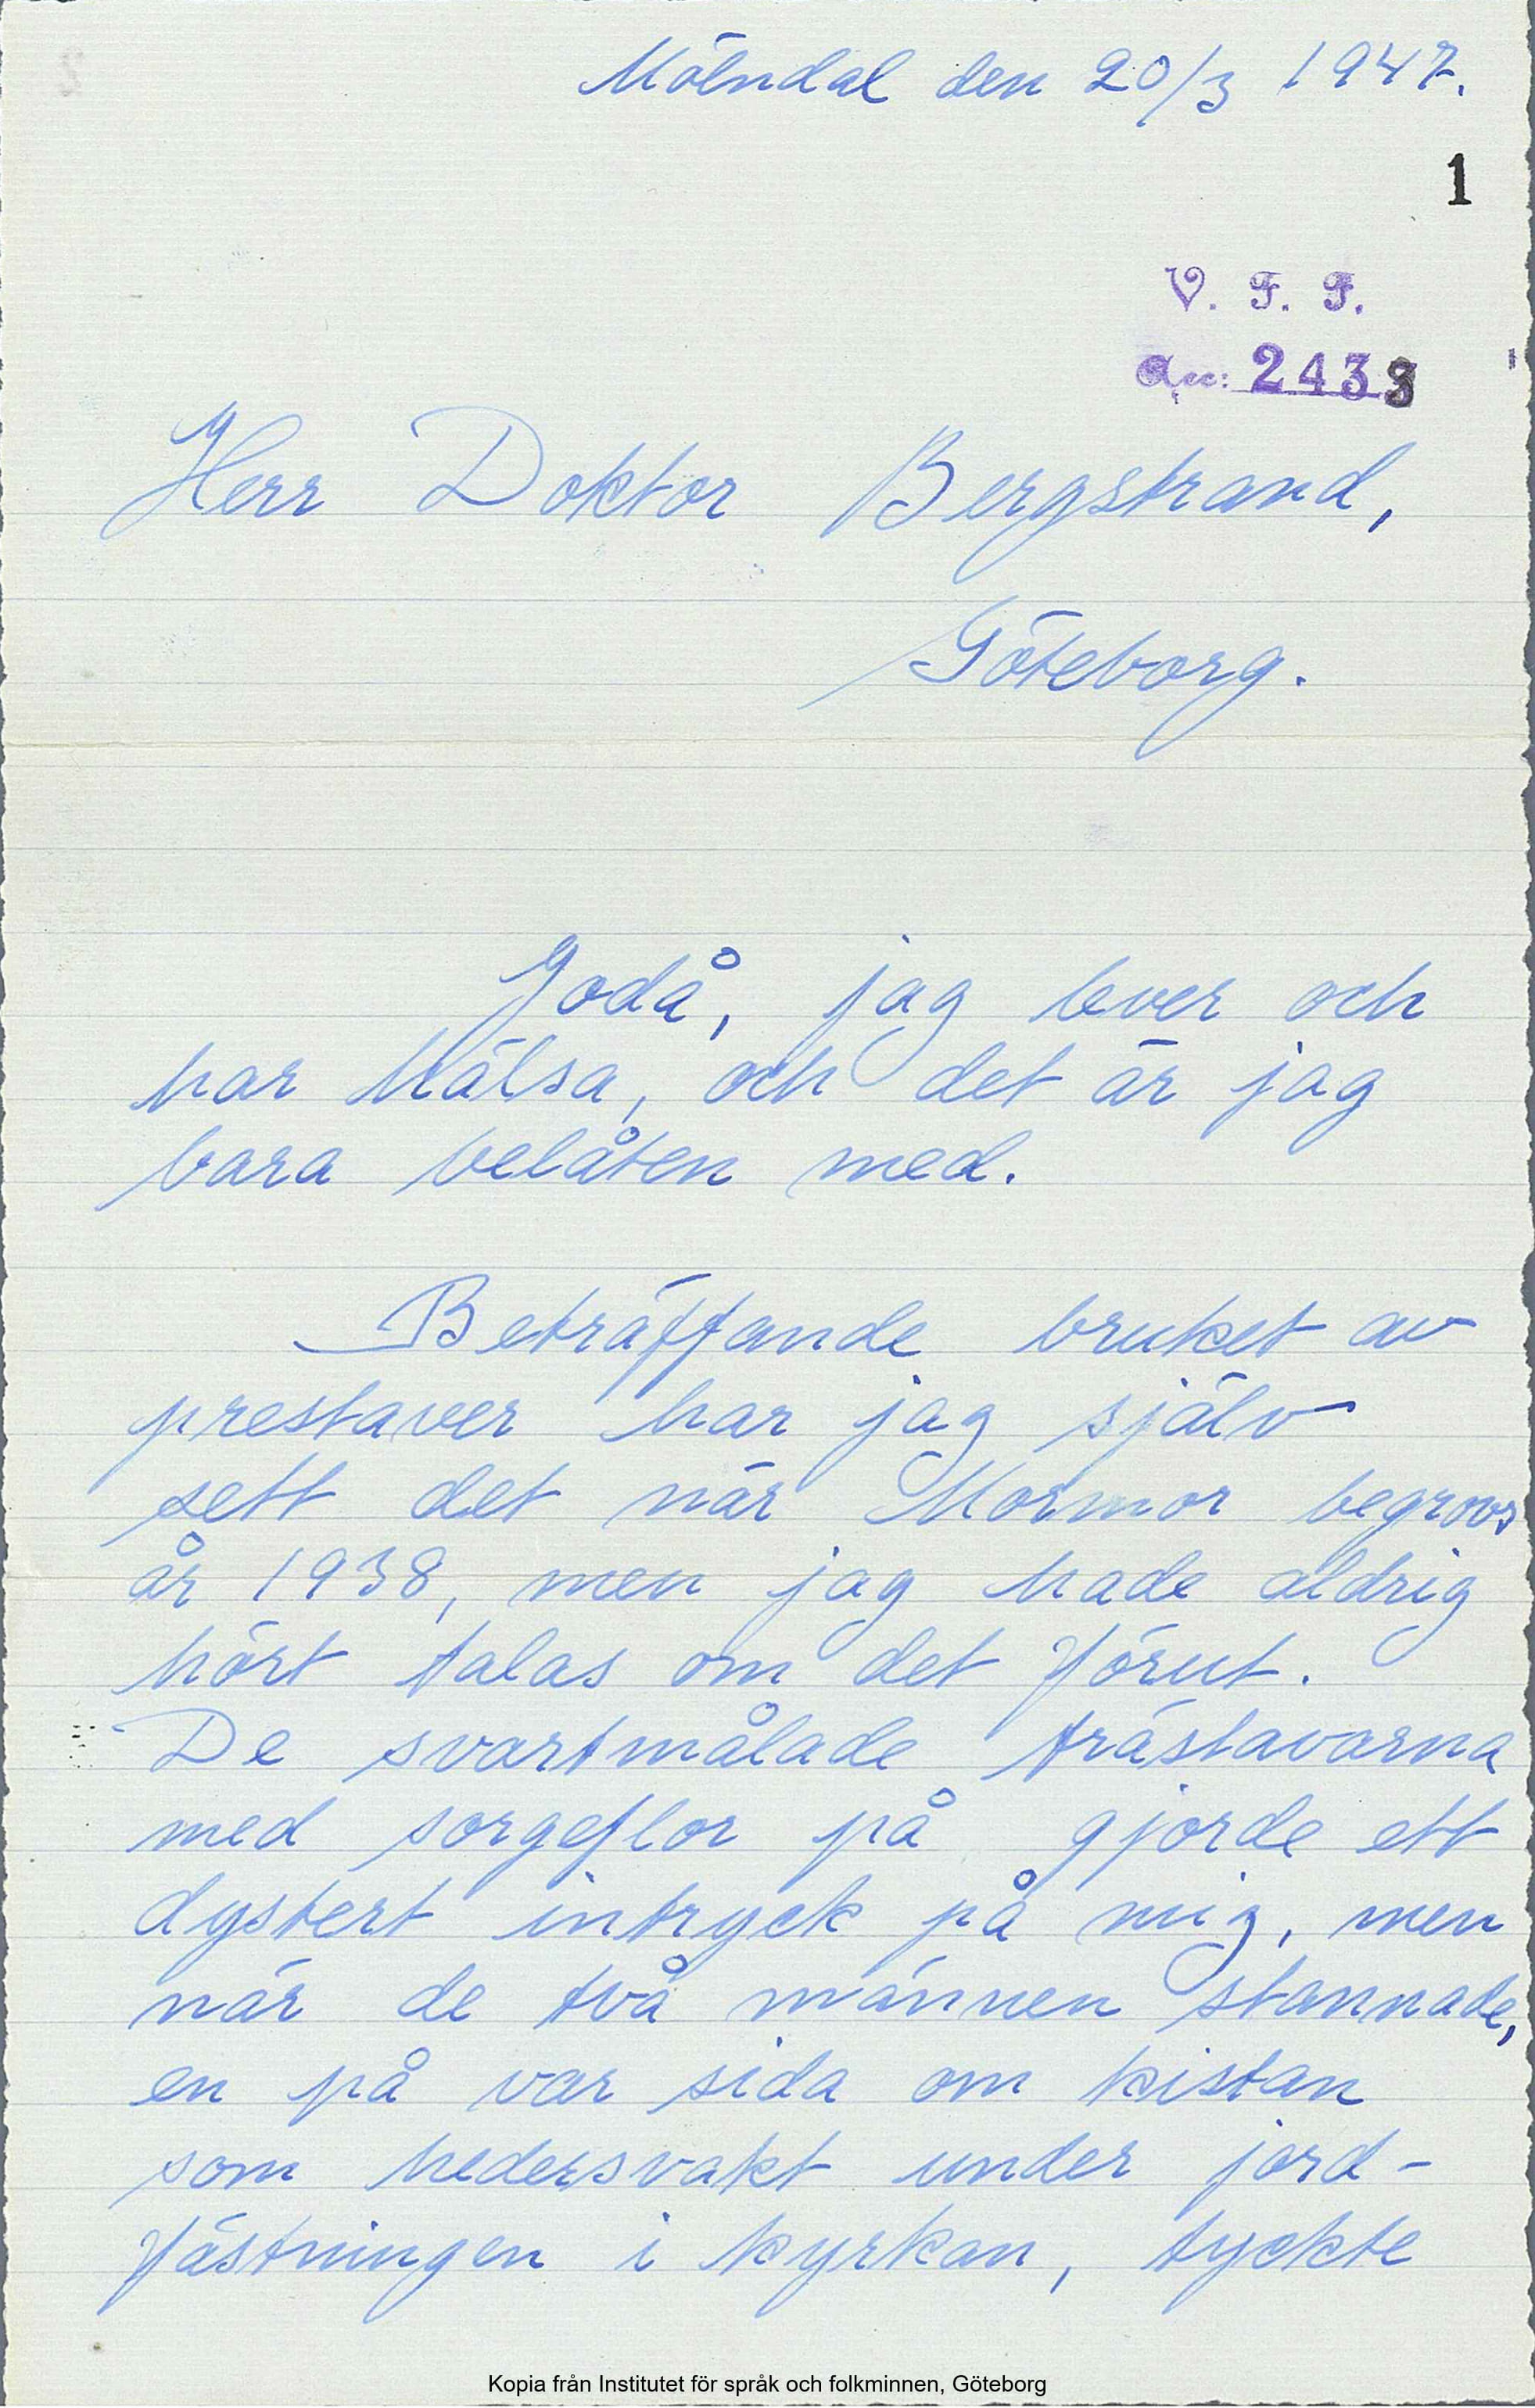 Mölndal den 20/3 1947.
1
V. F. F.
Acc: 2433
Herr Doktor Bergstrand,
Göteborg.
Jodå, jag lever och
har hälsa, och det är jag
bara belåten med.
Beträffande bruket av
prestaver har jag själv
sett det när Mormor begrovs
år 1938, men jag hade aldrig
hört talas om det förut.
De svartmålade trästavarna
med sorgeflor på gjorde ett
dystert intryck på mig, men
när de två männen stannade,
en på var sida om kistan
som hedersvakt under jord-
fästningen i kyrkan, tyckte
Kopia från Institutet för språk och folkminnen, Göteborg